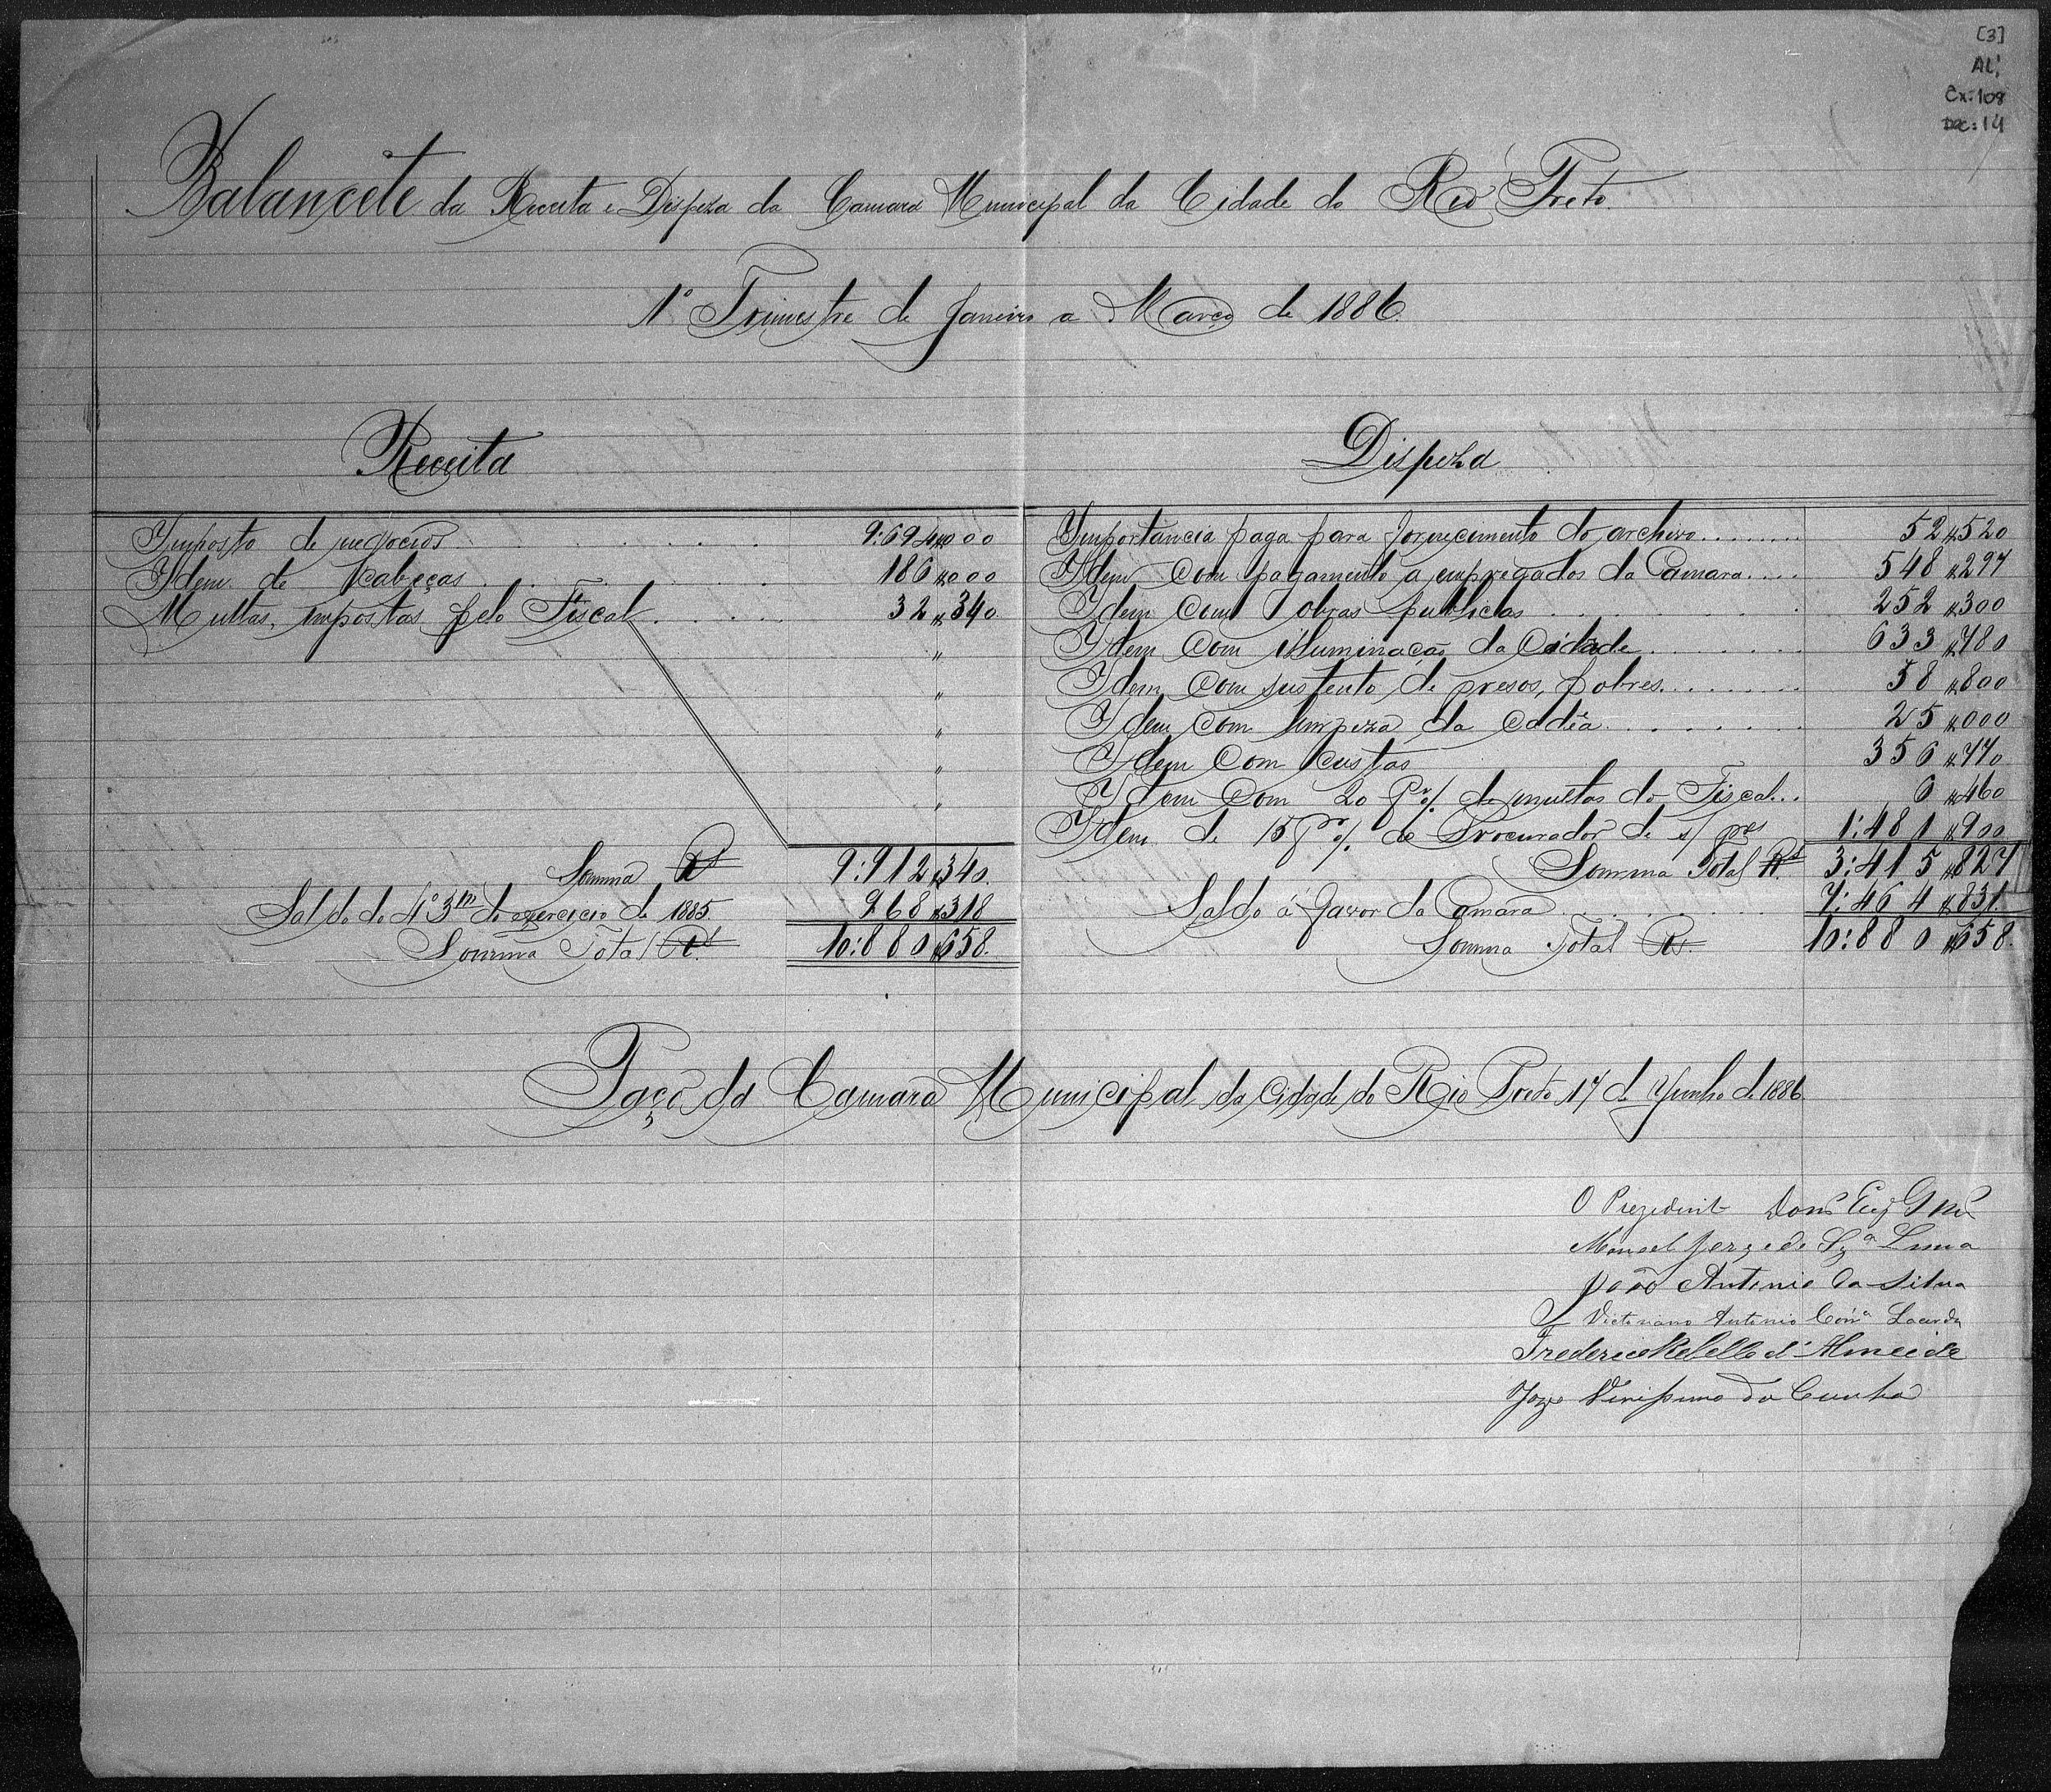 [3]
AL,
Cx: 108
Doc: 14
Balancête da Receita e Dispeza da Camara Municipal da Cidade do Rio Preto
1º Trimestre de Janeiro a Março de 1886.
Receita
Imposto de negocios 9:694$000
Idem de Cabeças 186$000
Multas, impostas pelo Fiscal 32$340
"
"
"
"
"
Somma Rs 9:912$340
Saldo do 4º 3tre do exercicio de 1885 968$318
Somma Total Rs 10:880$658
Dispeza
Importancia paga para fornecimento do archivo 52$520
Idem com pagamento a empregados da Camara 548$297
Idem com obras publicas 252$300
Idem com illuminação da Cidade 633$780
Idem com sustento de presos pobres 58$800
Idem com limpeza da Cadêa 25$000
Idem com Custas 356$770
Idem com 20 Pr% de multas do Fiscal 6$460
Idem de 15 Pr% ao Procurador de s/ 1:481$900
Somma Total Rs 3:415$827
Saldo á favor da Camara 7:464$831
Somma Total Rs 10:880$658
Paço da Camara Municipal da Cidade do Rio Preto 17 de Junho de 1886
O Prezidente Doms
Manoel Jorge de Sza Lima
João Antonio da Silva
Victoriano Antonio Lacerda
Frederico Rebello d'Almeida
Joze Verissimo da Cunha